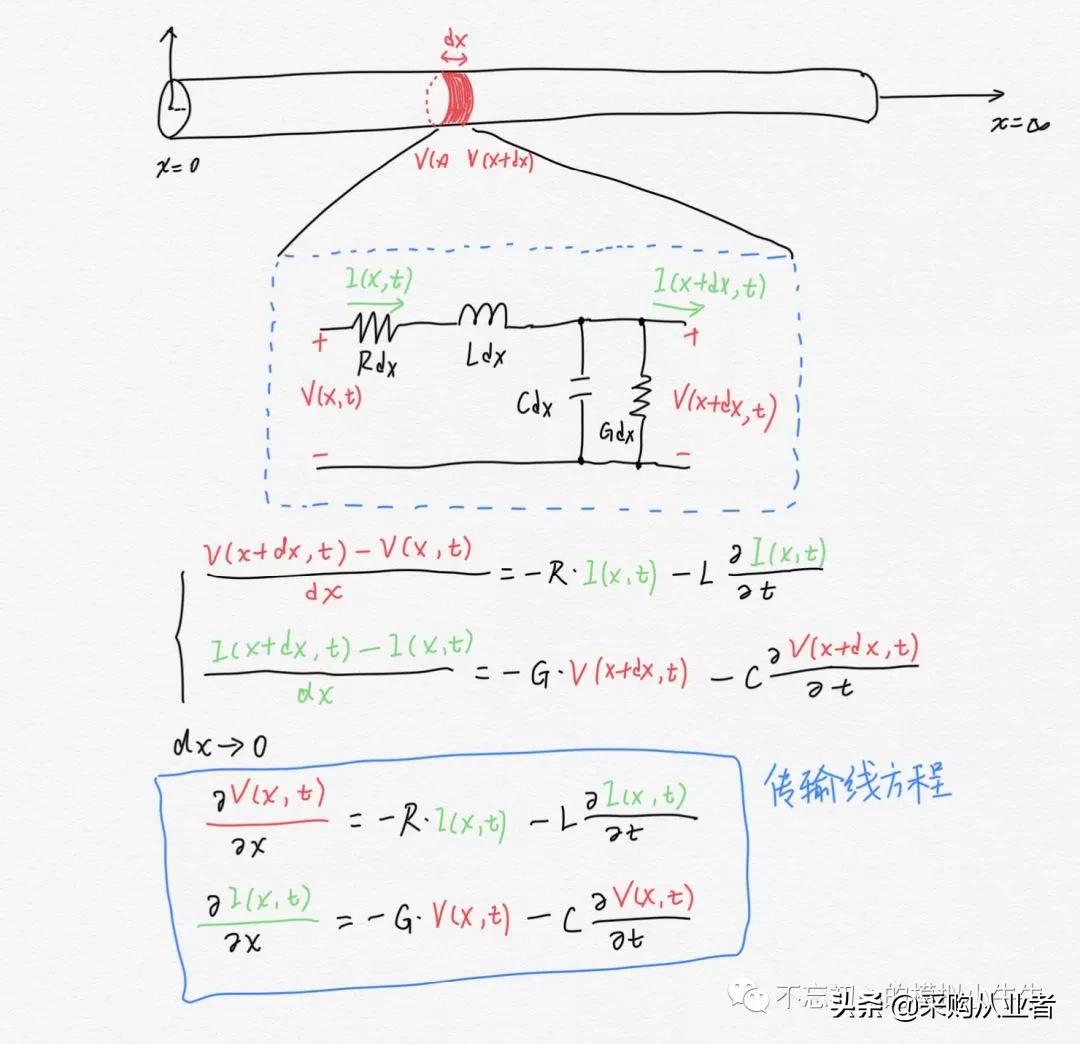 dx
x=0
V(x) V(x+dx)
x=∞
I(x,t)
I(x+dx,t)
+
+
Rdx
Ldx
V(x,t)
Cdx
Gdx
V(x+dx,t)
-
-
V(x+dx,t)-V(x,t)/dx = -R·I(x,t) - L ∂I(x,t)/∂t
I(x+dx,t)-I(x,t)/dx = -G·V(x+dx,t) - C ∂V(x+dx,t)/∂t
dx→0
传输线方程
∂V(x,t)/∂x = -R·I(x,t) - L ∂I(x,t)/∂t
∂I(x,t)/∂x = -G·V(x,t) - C ∂V(x,t)/∂t
不忘初心的模拟小牛牛
头条@采购从业者